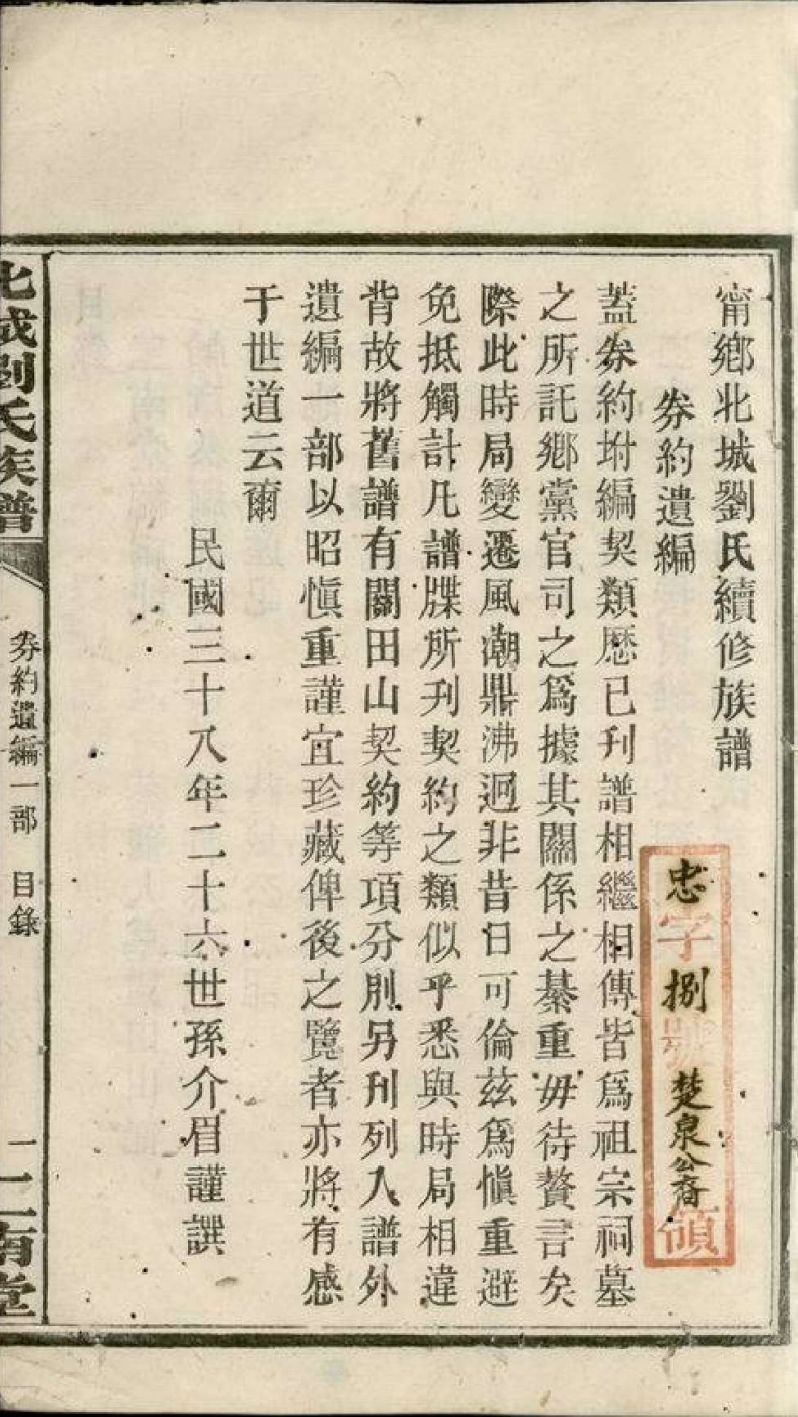 甯鄉北城劉氏續修族譜
券約遺編
忠字捌號楚泉公裔領
蓋券約坿編契類歷已刊譜相繼相傳皆爲祖宗祠墓
之所託鄉黨官司之爲據其關係之綦重毋待贅言矣
際此時局變遷風潮鼎沸迥非昔日可倫茲爲愼重避
免抵觸計凡譜牒所刋契約之類似乎悉與時局相違
背故將舊譜有關田山契約等項分別另刋列入譜外
遺編一部以昭愼重謹宜珍藏俾後之覽者亦將有感
于世道云爾
民國三十八年二十六世孫介眉謹譔
北城劉氏族譜
券約遺編一部 目錄
一
二南堂